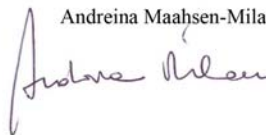 Andreina Maahsen-Mila
Andreina Milan